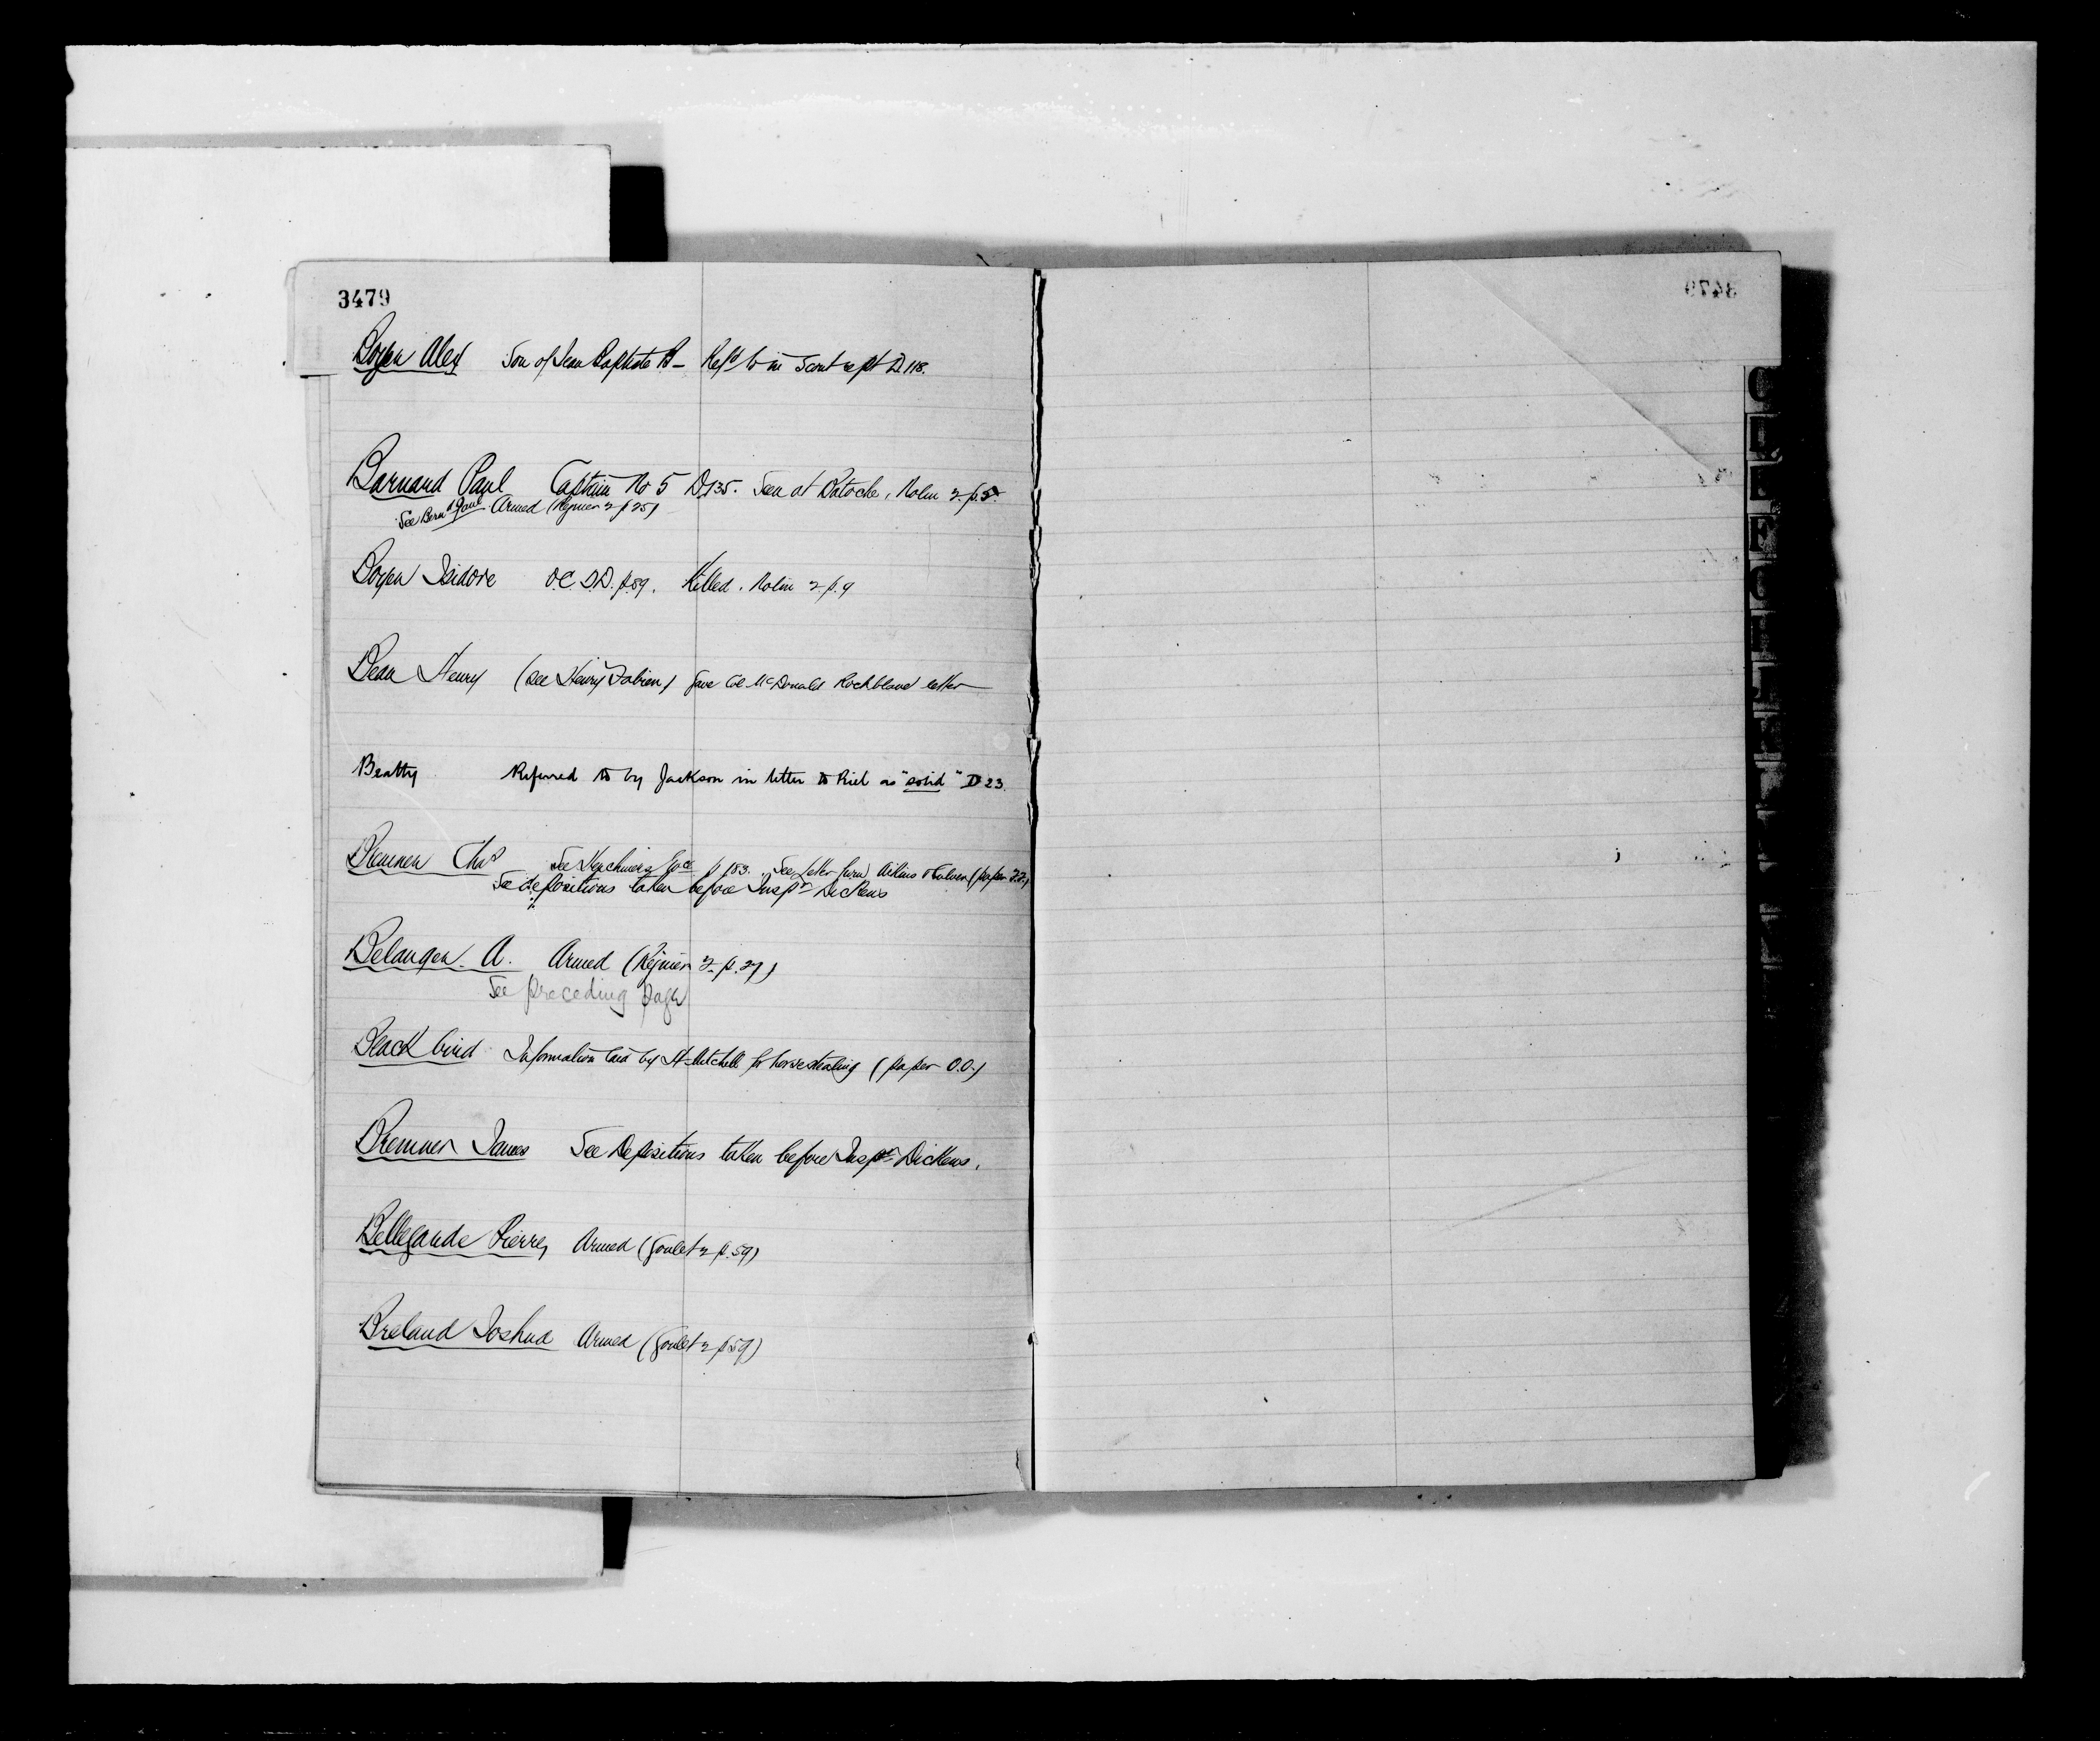 3479
Boyer Alex Son of Jean Baptiste B - Refd to in Scout rept D 118.
Barnard Paul Captain No 5 D 135. Seen at Batoche, Nolin 2 p. 5.
See Bernd Paul Armed (Regnier 2 p 25)
Boyer Isidore O.C. D.D. p. 59. Killed. Nolin 2 p. 9
Bear Henry (See Henry Fabien) gave Col McDonald Rockbland letter
Beatty Referred to by Jackson in letter to Riel as "solid" D 23.
Bremner Chas See p 183. See letter from Aikins & Culver (paper
See depositions taken before Inspr Dickens
Belanger. A. Armed (Regnier 2 p. 27)
See preceding page
Black bird Information laid by H Mitchell for horse stealing (paper O.O.)
Bremner James See Depositions taken before Inspr Dickens.
Bellegarde Pierre, Armed (Goulet 2 p. 59)
Breland Joshua Armed (Goulet 2 p 59)
3479